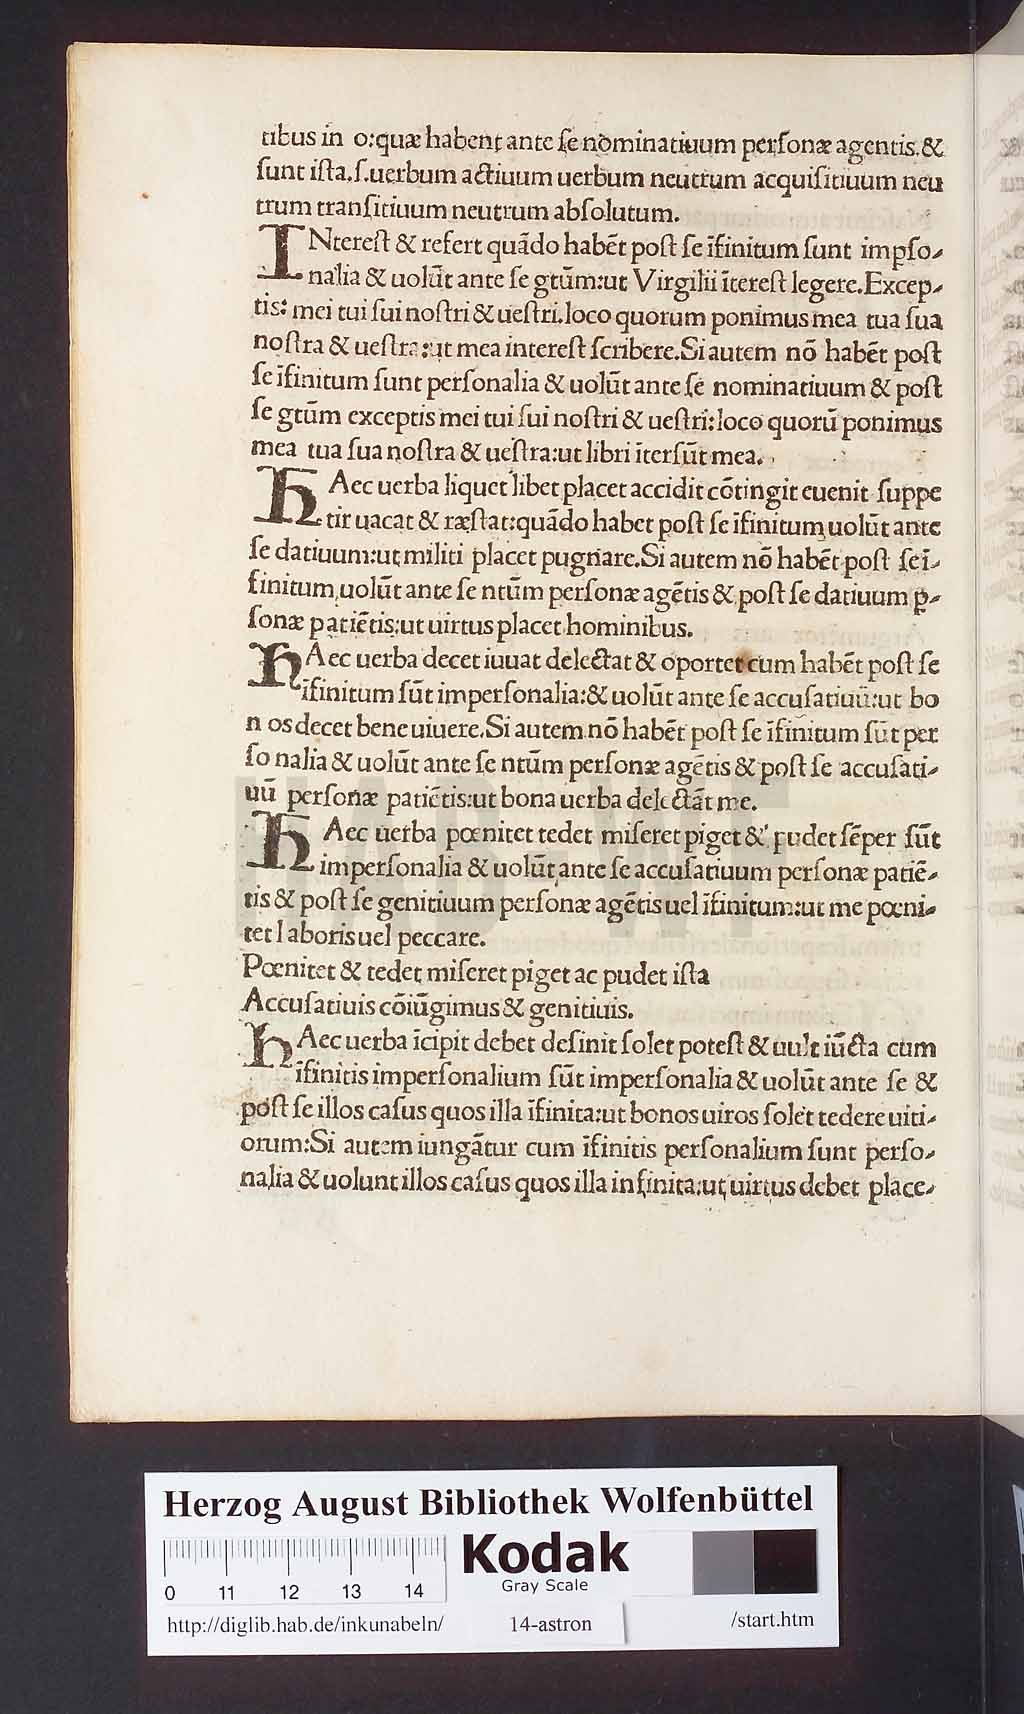 tibus in o:quæ habent ante ſe nominatiuum perſonæ agentis.&
ſunt iſta.ſ.uerbum actiuum uerbum neutrum acquiſitiuum neu
trum tranſitiuum neutrum abſolutum.
INtereſt & refert quãdo habẽt poſt ſe ĩfinitum ſunt impſo-
nalia & uolũt ante ſe gtũm:ut Virgilii ĩtereſt legere.Excep-
tis: mei tui ſui noſtri & ueſtri.loco quorum ponimus mea tua ſua
noſtra & ueſtra:ut mea intereſt ſcribere.Si autem nõ habẽt poſt
ſe ĩfinitum ſunt perſonalia & uolũt ante ſe nominatiuum & poſt
ſe gtũm exceptis mei tui ſui noſtri & ueſtri:loco quorũ ponimus
mea tua ſua noſtra & ueſtra:ut libri ĩterſũt mea.
HAec uerba liquet libet placet accidit cõtingit euenit ſuppe
tit uacat & ræſtat:quãdo habet poſt ſe ĩfinitum uolũt ante
ſe datiuum:ut militi placet pugnare.Si autem nõ habẽt poſt ſe ĩ-
finitum uolũt ante ſe ntũm perſonæ agẽtis & poſt ſe datiuum p-
ſonæ patiẽtis:ut uirtus placet hominibus.
HAec uerba decet iuuat delectat & oportet cum habẽt poſt ſe
ĩfinitum ſũt imperſonalia:& uolũt ante ſe accuſatiuũ:ut bo
n os decet bene uiuere.Si autem nõ habẽt poſt ſe ĩfinitum ſũt per
ſo nalia & uolũt ante ſe ntũm perſonæ agẽtis & poſt ſe accuſati-
uũ perſonæ patiẽtis:ut bona uerba delectãt me.
HAec uerba pœnitet tedet miſeret piget & pudet ſẽper ſũt
imperſonalia & uolũt ante ſe accuſatiuum perſonæ patiẽ-
tis & poſt ſe genitiuum perſonæ agẽtis uel ĩfinitum:ut me pœni-
tet l aboris uel peccare.
Pœnitet & tedet miſeret piget ac pudet iſta
Accuſatiuis cõiũgimus & genitiuis.
HAec uerba ĩcipit debet deſinit ſolet poteſt & uult iũcta cum
ĩfinitis imperſonalium ſũt imperſonalia & uolũt ante ſe &
poſt ſe illos caſus quos illa ĩfinita:ut bonos uiros ſolet tedere uiti-
orum:Si autem iungãtur cum ĩfinitis perſonalium ſunt perſo-
nalia & uolunt illos caſus quos illa infinita:ut uirtus debet place-
HAB-WF
Herzog August Bibliothek Wolfenbüttel
0 11 12 13 14
Kodak
Gray Scale
http://diglib.hab.de/inkunabeln/ 14-astron /start.htm